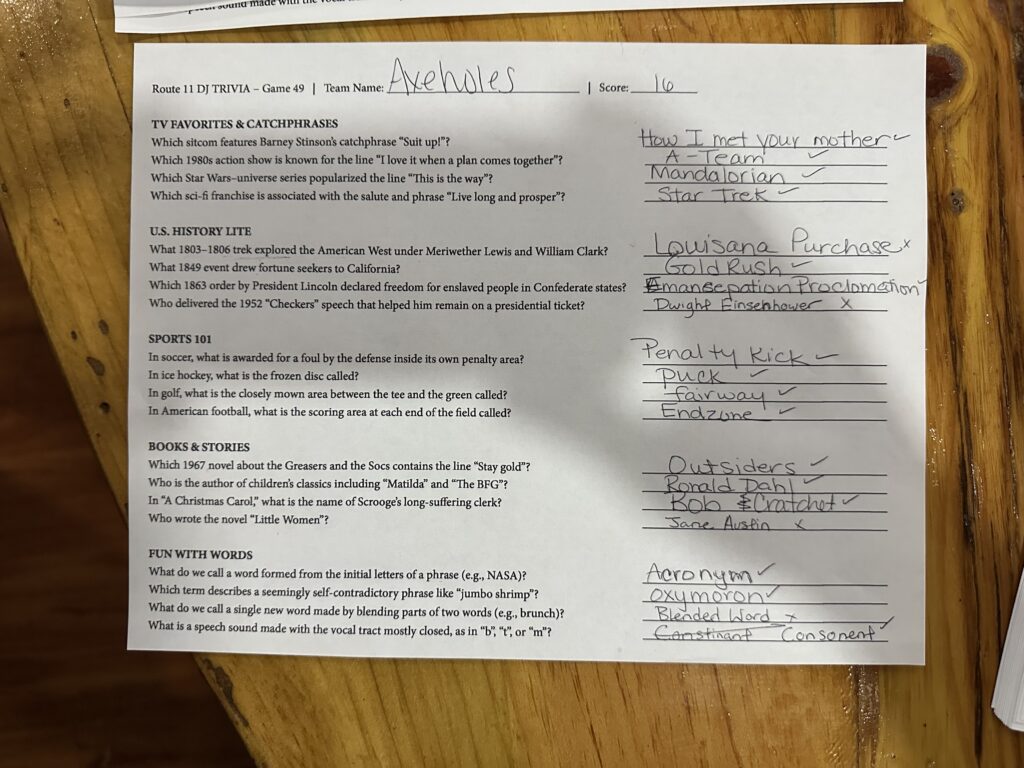 speech sound made with the vocal tract
Route 11 DJ TRIVIA – Game 49 | Team Name: Axeholes | Score: 16
TV FAVORITES & CATCHPHRASES
Which sitcom features Barney Stinson's catchphrase "Suit up!"? How I met your mother ✓
Which 1980s action show is known for the line "I love it when a plan comes together"? A-Team ✓
Which Star Wars–universe series popularized the line "This is the way"? Mandalorian ✓
Which sci-fi franchise is associated with the salute and phrase "Live long and prosper"? Star Trek ✓
U.S. HISTORY LITE
What 1803–1806 trek explored the American West under Meriwether Lewis and William Clark? Louisana Purchase x
What 1849 event drew fortune seekers to California? Gold Rush ✓
Which 1863 order by President Lincoln declared freedom for enslaved people in Confederate states? Emansepation Proclomation ✓
Who delivered the 1952 "Checkers" speech that helped him remain on a presidential ticket? Dwight Einsenhower x
SPORTS 101
In soccer, what is awarded for a foul by the defense inside its own penalty area? Penalty Kick ✓
In ice hockey, what is the frozen disc called? Puck ✓
In golf, what is the closely mown area between the tee and the green called? fairway ✓
In American football, what is the scoring area at each end of the field called? Endzone ✓
BOOKS & STORIES
Which 1967 novel about the Greasers and the Socs contains the line "Stay gold"? Outsiders ✓
Who is the author of children's classics including "Matilda" and "The BFG"? Ronald Dahl ✓
In "A Christmas Carol," what is the name of Scrooge's long-suffering clerk? Bob Cratchet ✓
Who wrote the novel "Little Women"? Jane Austin x
FUN WITH WORDS
What do we call a word formed from the initial letters of a phrase (e.g., NASA)? Acronym ✓
Which term describes a seemingly self-contradictory phrase like "jumbo shrimp"? Oxymoron ✓
What do we call a single new word made by blending parts of two words (e.g., brunch)? Blended Word x
What is a speech sound made with the vocal tract mostly closed, as in "b", "t", or "m"? Constinant Consonent ✓